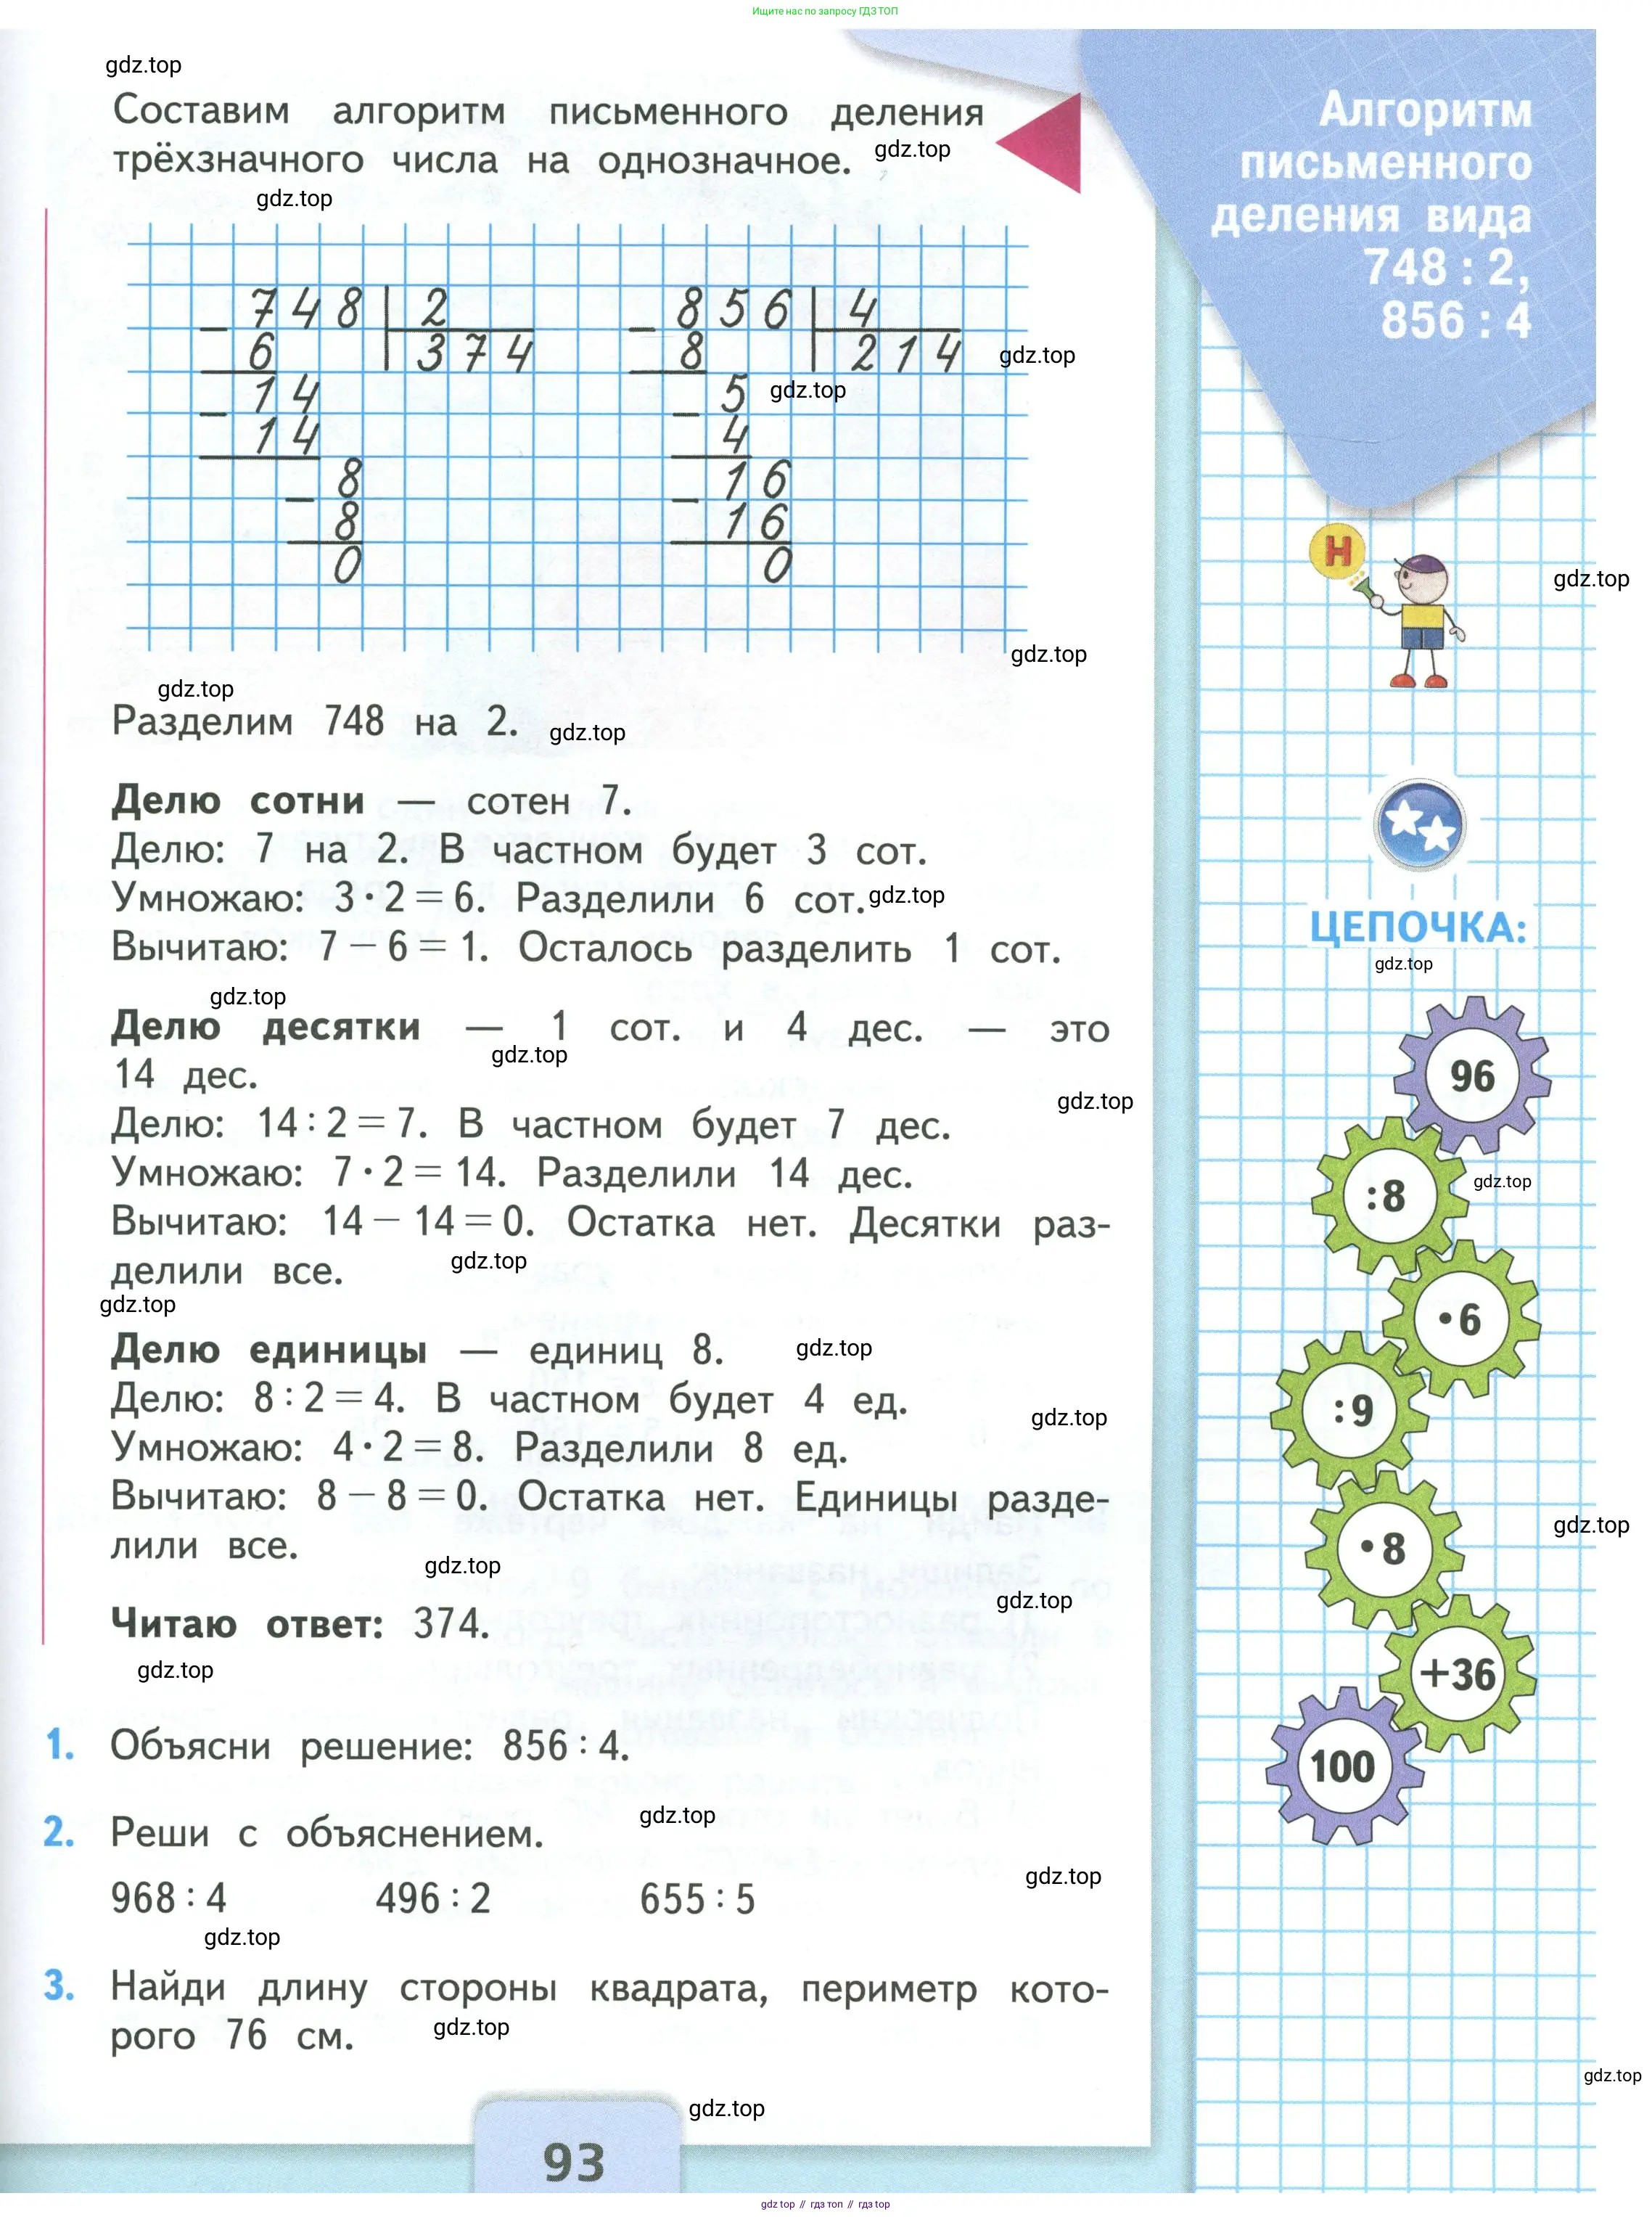 Ищите нас по запросу ГДЗ ТОП
gdz.top
Составим алгоритм письменного деления
трёхзначного числа на однозначное.
gdz.top
gdz.top
Алгоритм
письменного
деления вида
748 : 2,
856 : 4
748 2
6 374
14
14
8
8
0
856 4
8 214
5
4
16
16
0
gdz.top
gdz.top
gdz.top
gdz.top
Н
gdz.top
Разделим 748 на 2.
gdz.top
Делю сотни — сотен 7.
Делю: 7 на 2. В частном будет 3 сот.
Умножаю: 3 · 2 = 6. Разделили 6 сот.
gdz.top
Вычитаю: 7 − 6 = 1. Осталось разделить 1 сот.
gdz.top
Делю десятки — 1 сот. и 4 дес. — это
gdz.top
14 дес.
gdz.top
Делю: 14 : 2 = 7. В частном будет 7 дес.
Умножаю: 7 · 2 = 14. Разделили 14 дес.
Вычитаю: 14 − 14 = 0. Остатка нет. Десятки раз-
делили все.
gdz.top
gdz.top
Делю единицы — единиц 8.
gdz.top
Делю: 8 : 2 = 4. В частном будет 4 ед.
gdz.top
Умножаю: 4 · 2 = 8. Разделили 8 ед.
Вычитаю: 8 − 8 = 0. Остатка нет. Единицы разде-
лили все.
gdz.top
gdz.top
Читаю ответ: 374.
gdz.top
1. Объясни решение: 856 : 4.
gdz.top
2. Реши с объяснением.
968 : 4 496 : 2 655 : 5
gdz.top
gdz.top
3. Найди длину стороны квадрата, периметр кото-
рого 76 см.
gdz.top
gdz.top
93
ЦЕПОЧКА:
gdz.top
96
:8
gdz.top
· 6
:9
· 8
gdz.top
+36
100
gdz.top
gdz.top // гдз топ // гдз.top